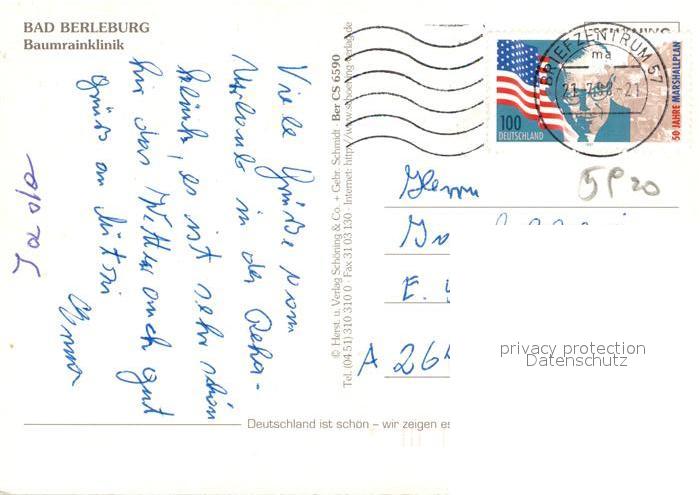 BAD BERLEBURG
Baumrainklinik
Viele Grüße vom
Urlaub in der Reha-
klinik, es ist sehr schön
hier das Wetter auch gut
Grüß an
© Herst. u. Verlag Schöning & Co. + Gebr. Schmidt
Ber CS 6590
Tel. (04 51) 310 310 0 · Fax 31 03 130 · Internet: http://www.schoening-verlag.de
BRIEFZENTRUM 57
ma
-21
100
DEUTSCHLAND
50 JAHRE MARSHALLPLAN
Herrn
E.
A 26
privacy protection
Datenschutz
Deutschland ist schön – wir zeigen es